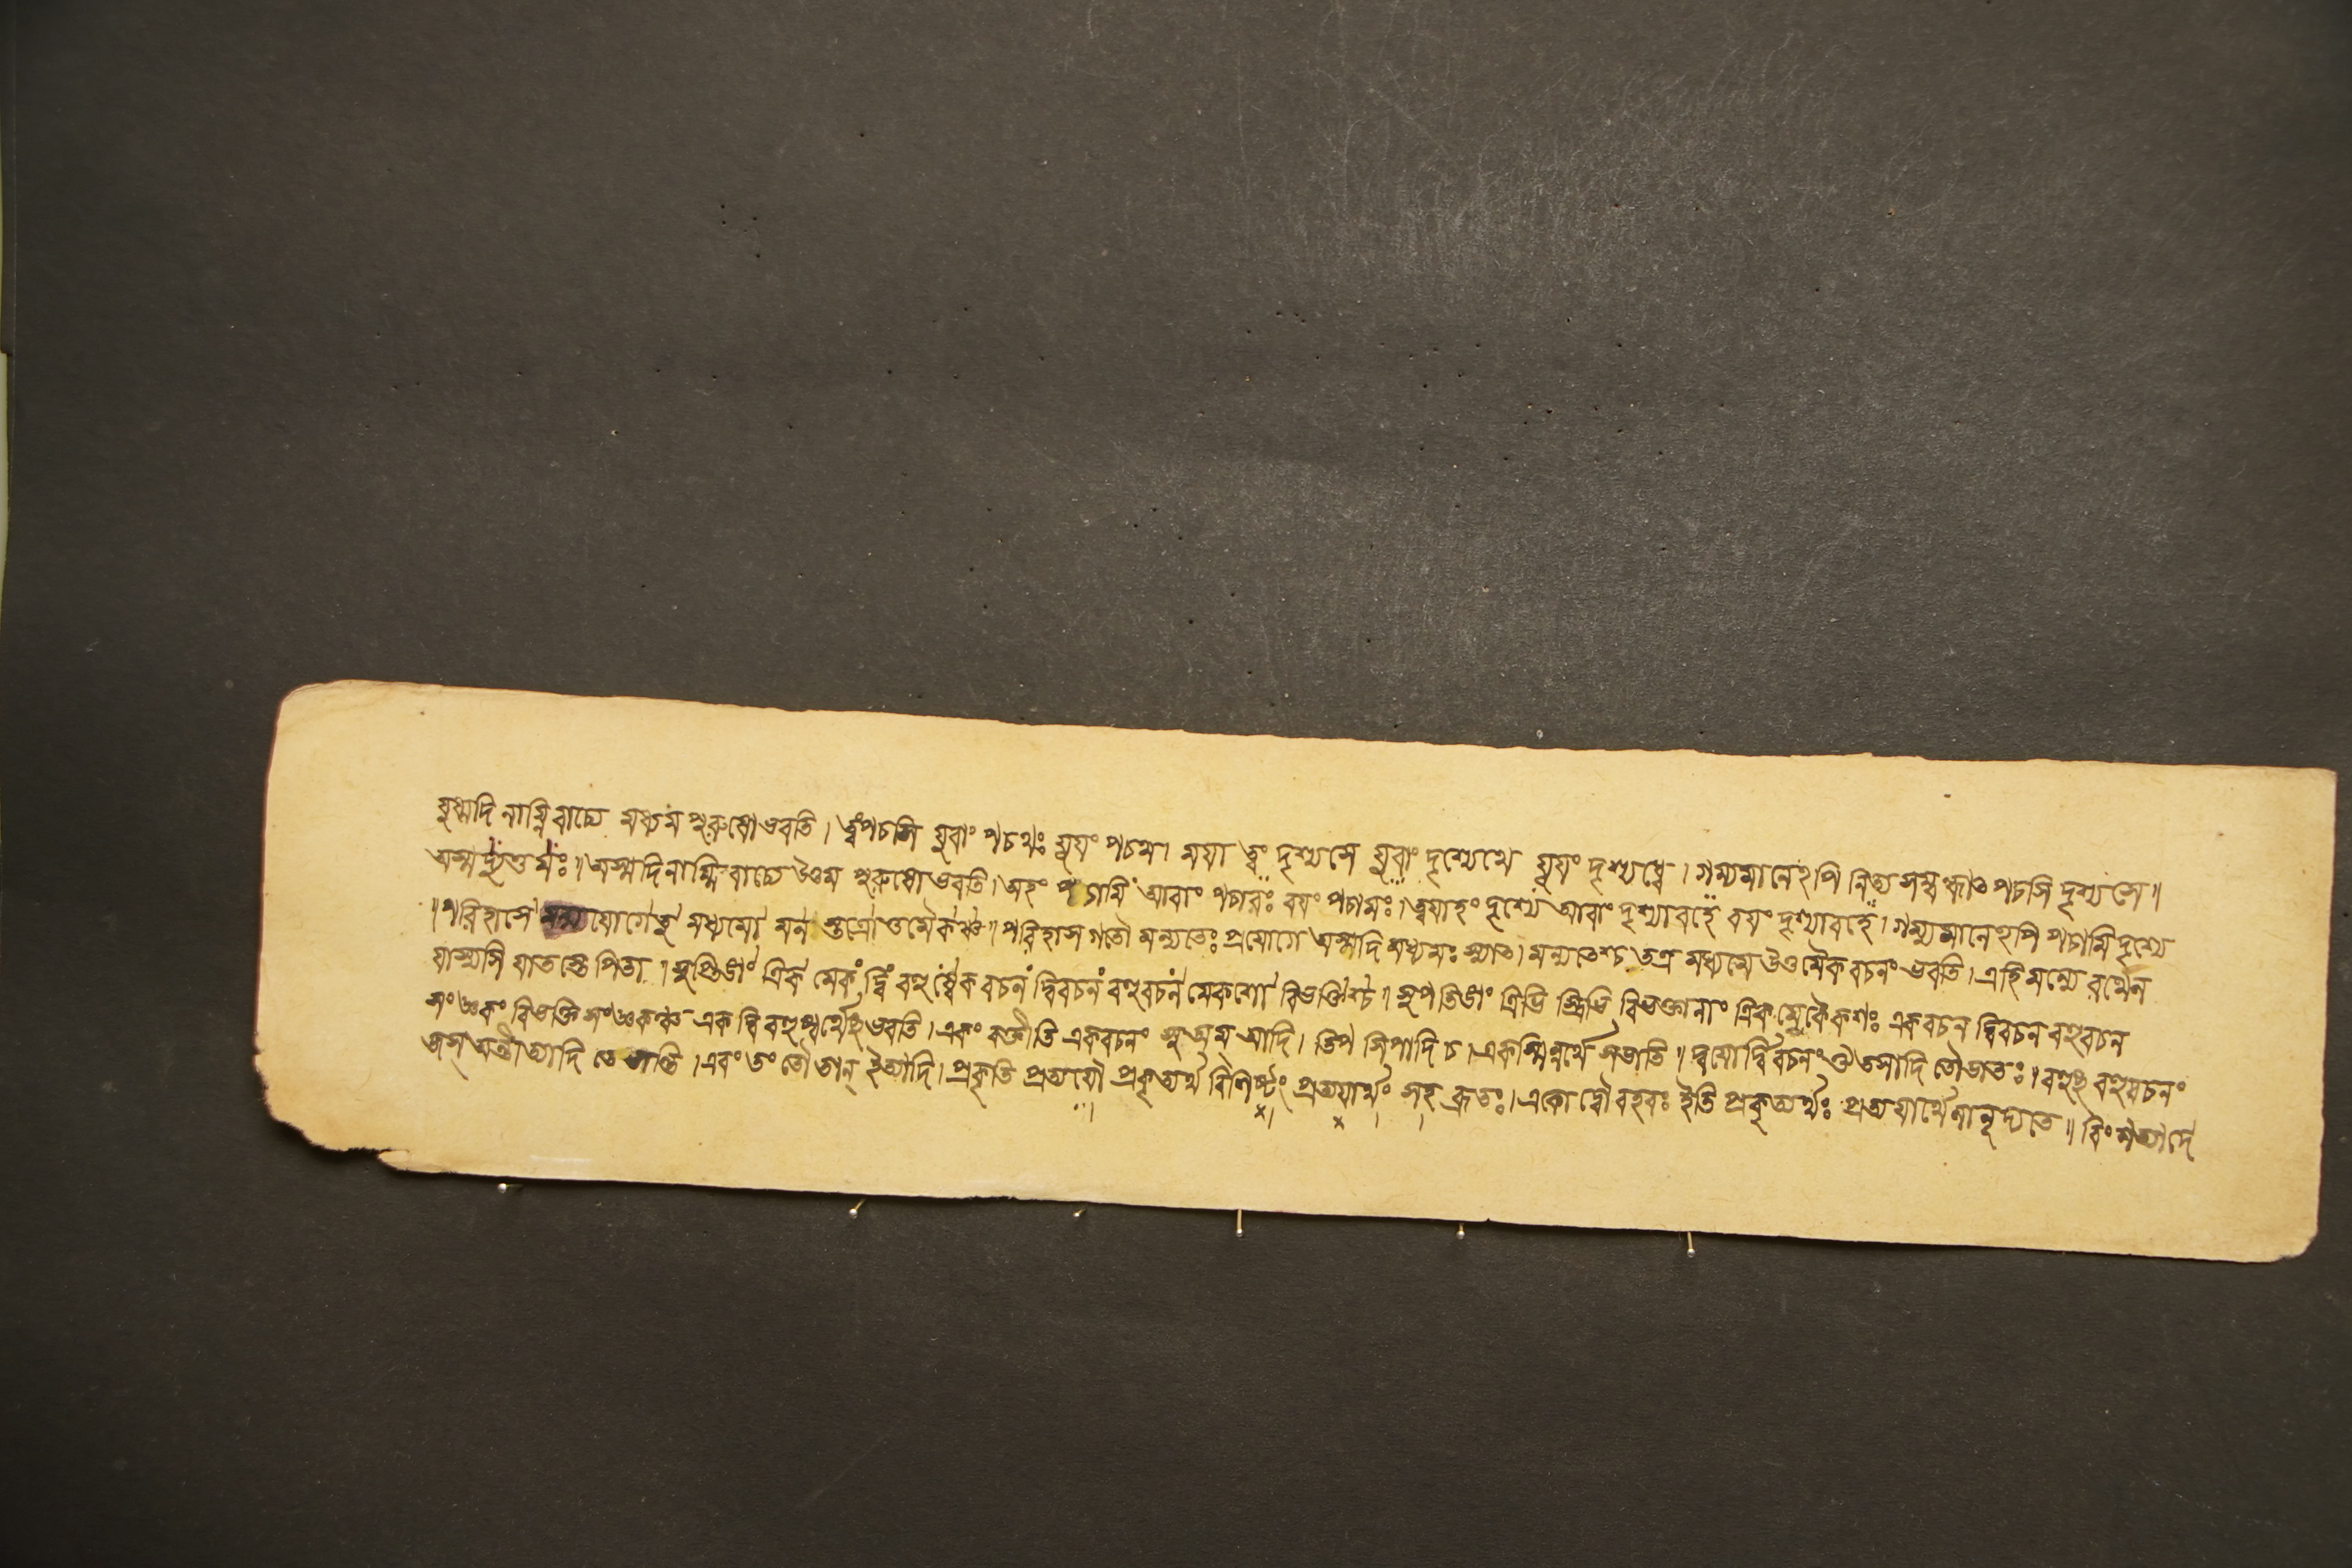 যুষ্মদি নাম্নি বাচ্যে মধ্যম পুরুষো ভবতি । ত্বং পচসি যুবাং পচথঃ যূয়ং পচথ । ময়া ত্বং দৃশ্যসে যুবাং দৃশ্যেথে যূয়ং দৃশ্যধ্বে । গম্যমানেঽপি নিত্য সম্বন্ধাৎ পচসি দৃশ্যসে ॥
অস্মদ্যুত্তমঃ ॥ অস্মদি নাম্নি বাচ্যে উত্তম পুরুষো ভবতি । অহং পচামি আবাং পচাবঃ বয়ং পচামঃ । ত্বয়াহং দৃশ্যে আবাং দৃশ্যাবহে বয়ং দৃশ্যামহে । গম্যমানেঽপি পচামি দৃশ্যে
॥ পরিহাসে মন্যযোগেতু মধ্যমো মন স্তত্রোত্তমৈকঞ্চ ॥ পরিহাস গতৌ মন্যতেঃ প্রয়োগে অস্মদি মধ্যমঃ স্যাৎ । মন্যতেশ্চ তত্র মধ্যমে উত্তমৈক বচনং ভবতি । এহি মন্যে রথেন
যাস্যসি যাতস্তে পিতা । সুপ্তিঙাং ত্রিক মেকং দ্বি বহুষ্বেক বচনং দ্বিবচনং বহুবচন মেকশো বিভক্তিশ্চ ॥ সুপ্ তিঙাং ত্রিভি স্ত্রিভি বিভক্তানাং ত্রিক মেকৈকশঃ একবচন দ্বিবচন বহুবচন
সংজ্ঞকং বিভক্তি সংজ্ঞকঞ্চ এক দ্বি বহুষ্বর্থেষু ভবতি । একং বক্তীতি একবচনং সু অম্ আদি । তিপ্ সিপাদি চ । একস্মিন্নর্থে সভাতি ॥ দ্বয়োর্দ্বিবচনং ঔ তসাদি তৌ ভাতঃ । বহুষু বহুবচনং
জস্ অন্তীত্যাদি তে ভান্তি । এবং তং তৌ তান্ ইত্যাদি । প্রকৃতি প্রত্যয়ৌ প্রকৃত্যর্থ বিশিষ্টং প্রত্যয়ার্থং সহ ব্রূতঃ । একো দ্বৌ বহবঃ ইতি প্রকৃত্যর্থঃ প্রত্যয়ার্থেনানূদ্যতে ॥ বিংশত্যাদে